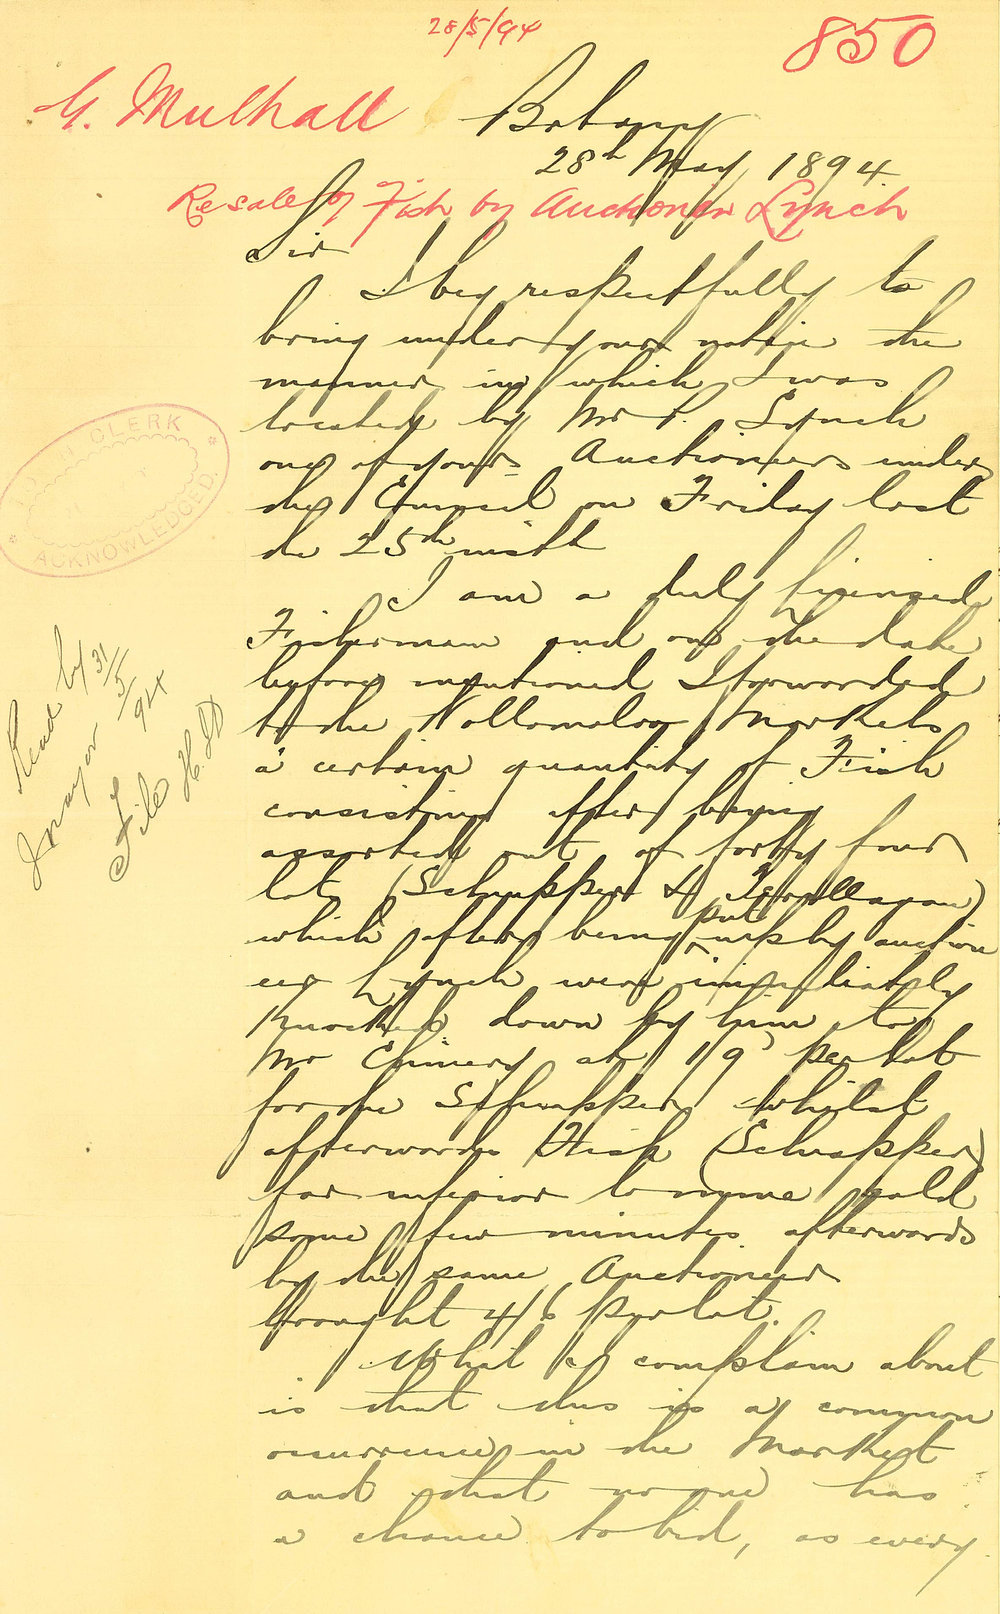 28/5/94
850
G. Mulhall
Botany
28th May 1894.
Resale of Fish by Auctioneer Lynch
Sir
I beg respectfully to
bring under your notice the
manner in which I was
treated by Mr P. Lynch
one of yours Auctioneers under
the Council on Friday last
the 25th inst
I am a duly licensed
Fisherman and on the date
before mentioned I forwarded
to the Wollomoloo Markets
a certain quantity of Fish
consisting after being
assorted out of forty four
lots (Schnapper &
which after being put up by auction
eer Lynch were immediately
Knocked down by him to
Mr Chinery at 1/9 per lot
for the Schnapper whilst
afterwards Fish (Schnapper)
far inferior to mine sold
some few minutes afterwards
by the same Auctioneer
brought 4/6 per lot.
What I complain about
is that this is a common
occurrence in the Market
and that no one has
a chance to bid, as every
CLERK
ACKNOWLEDGED
Read by 31/5/94
Mayor
File